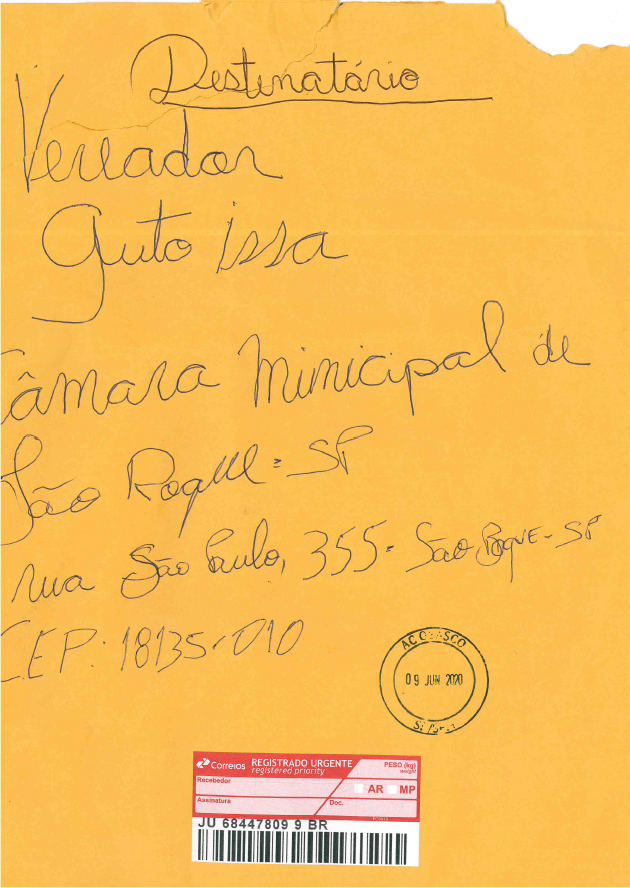 Destinatário
Vereador
Guto issa
Câmara Minicipal de
São Roque - SP
rua São Paulo, 355 - São Roque - SP
CEP: 18135-010
AC OSASCO
09 JUN 2020
Correios REGISTRADO URGENTE
registered priority
PESO (kg)
weight
Recebedor
AR MP
Assinatura
Doc.
JU 68447809 9 BR